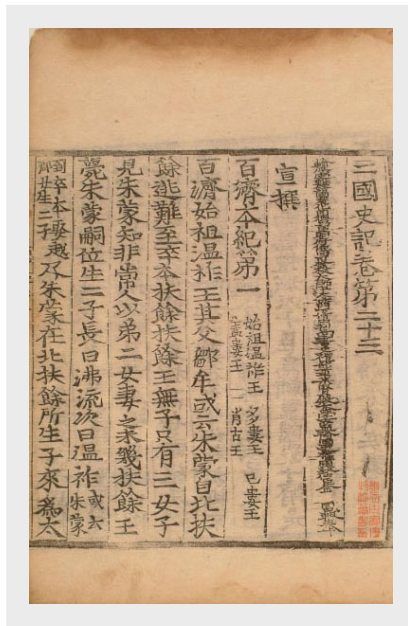 三國史記卷第二十三
宣撰
百濟本紀第一 始祖溫祚王 多婁王 己婁王
盖婁王 肖古王
百濟始祖溫祚王其父鄒牟或云朱蒙自北扶
餘逃難至卒本扶餘扶餘王無子只有三女子
見朱蒙知非常人以弟二女妻之未幾扶餘王
薨朱蒙嗣位生二子長曰沸流次曰溫祚 或云
朱蒙
到卒本娶越
郡女生二子 及朱蒙在北扶餘所生子來爲太